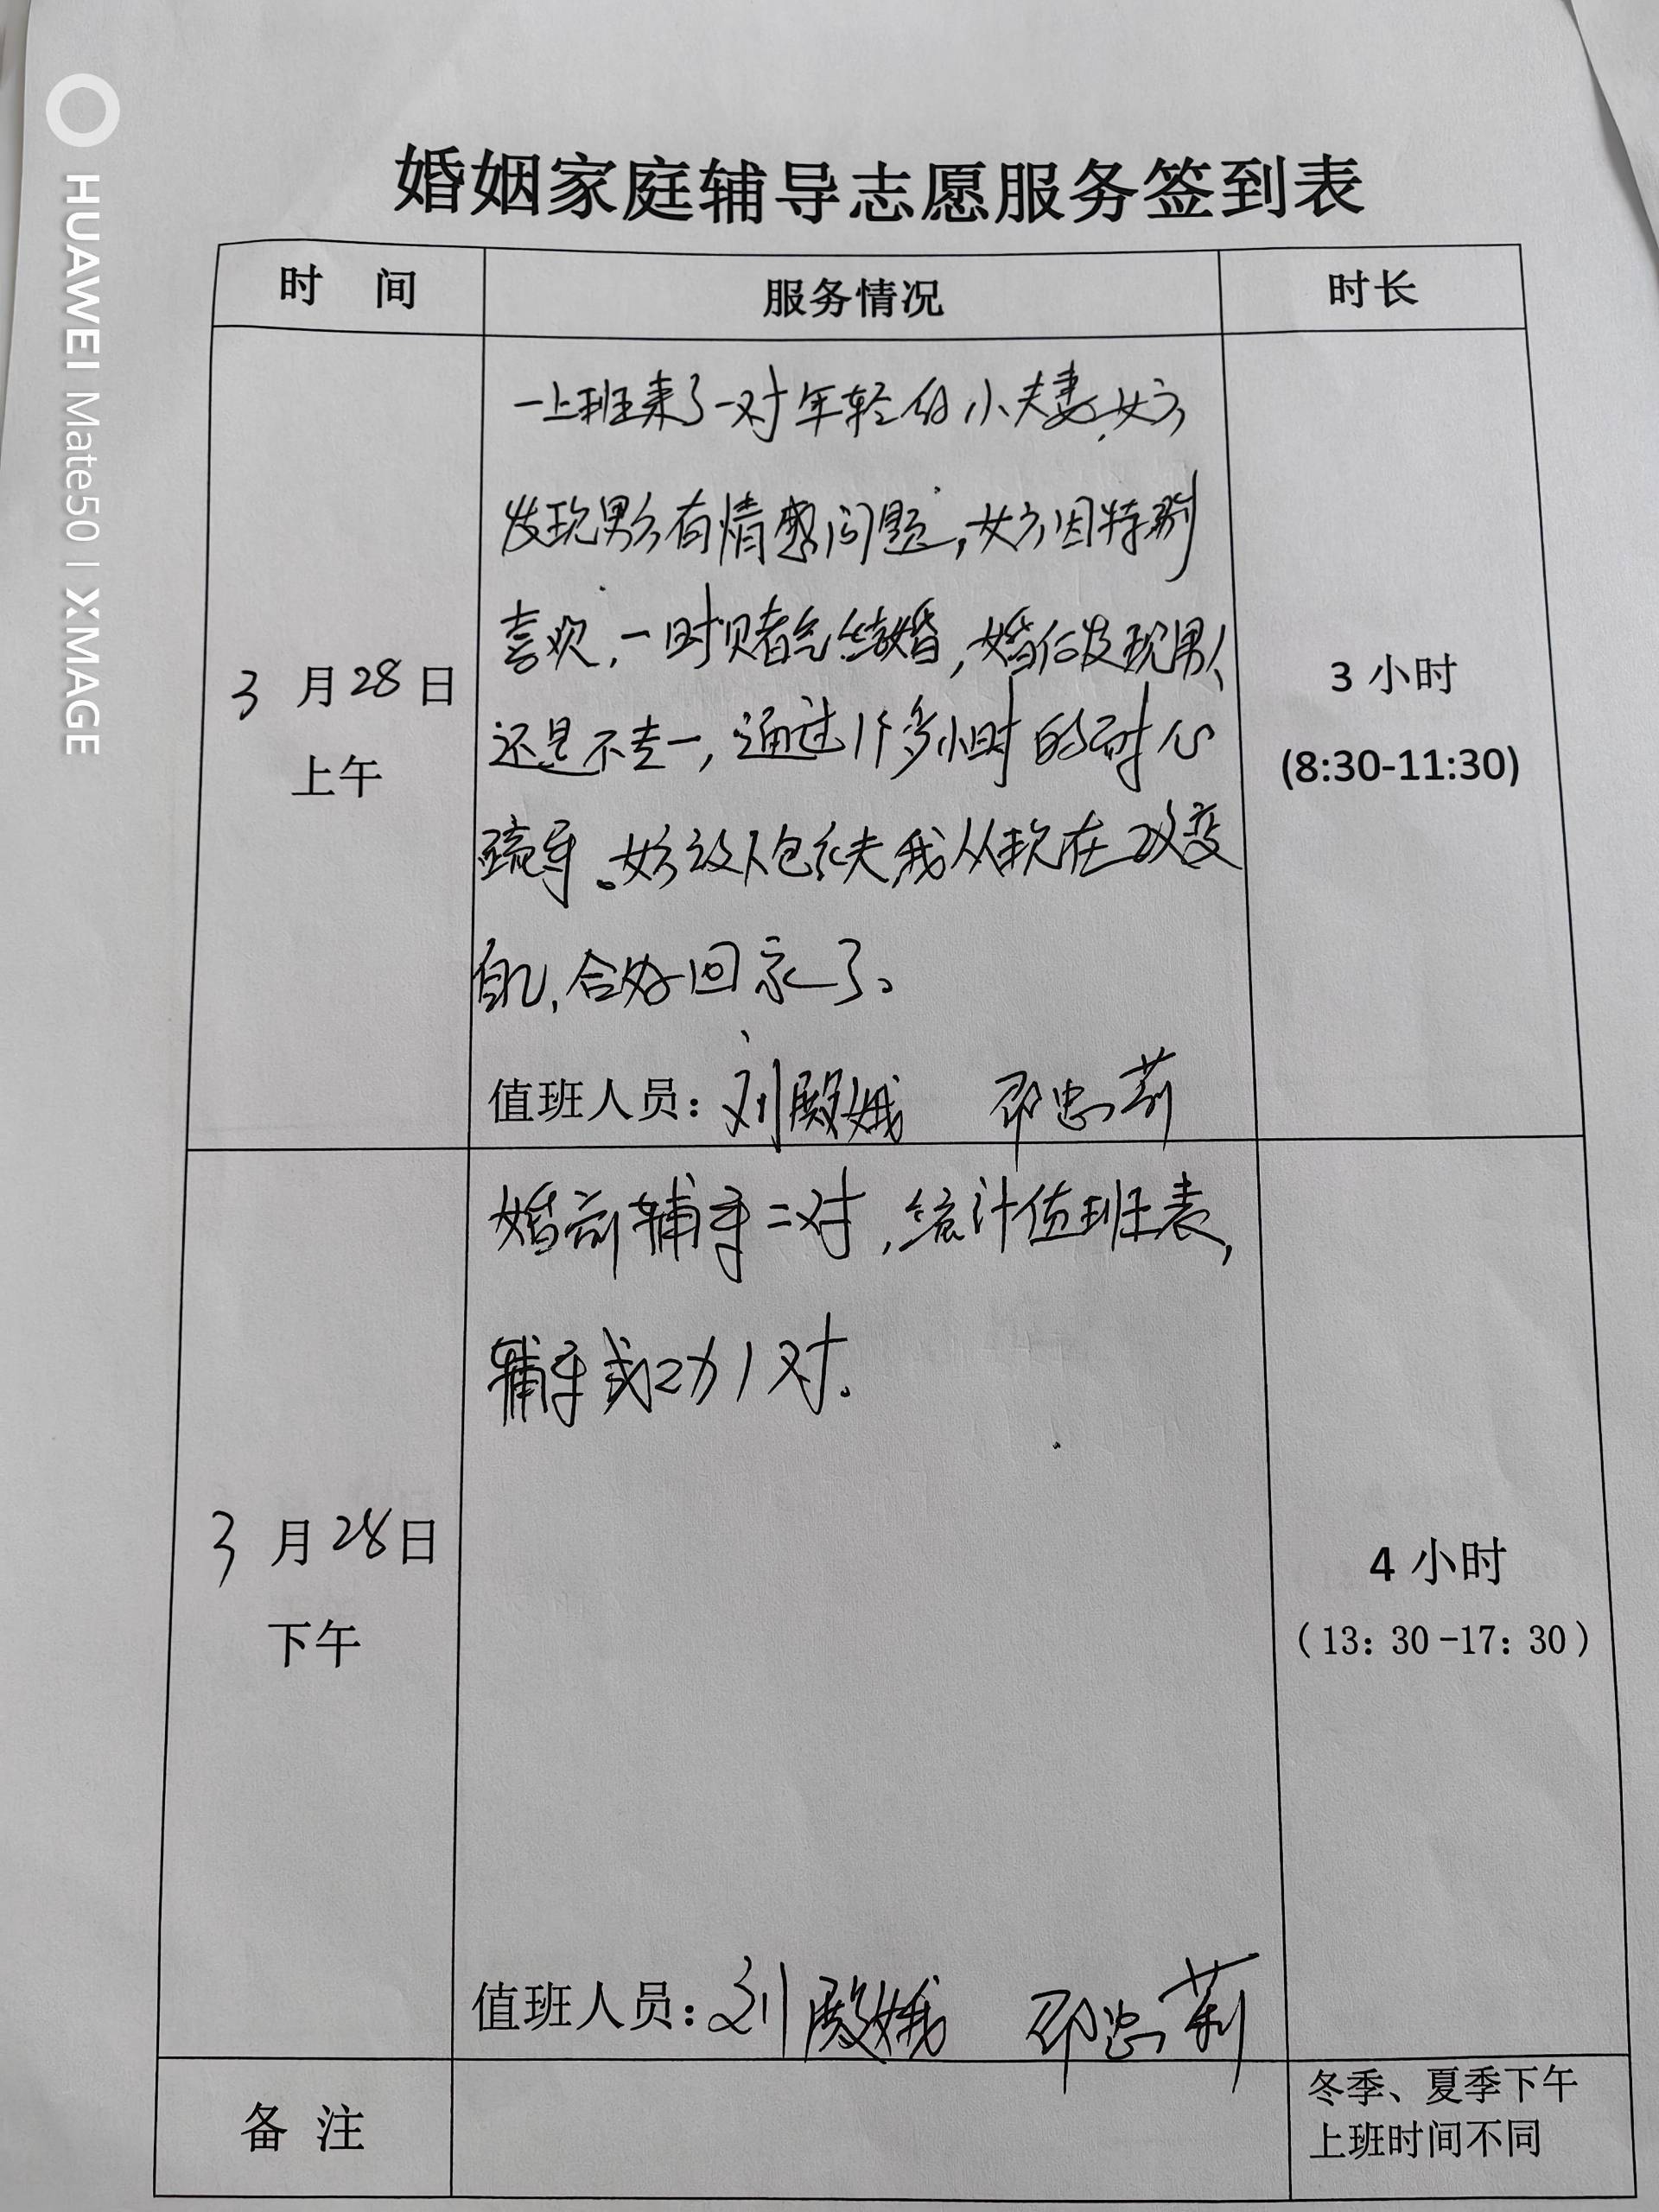 HUAWEI Mate50 | XMAGE
婚姻家庭辅导志愿服务签到表
时 间 服务情况 时长
一上班来了一对年轻的小夫妻,女方
发现男方有情感问题,女方因特别
喜欢,一时赌气结婚,婚后发现男人
还是不专一,通过1个多小时的耐心
疏导。女方说人包丈夫我从现在改变
自己,合好回家了。
值班人员:刘殿娥 邵忠莉
3月28日
上午
3小时
(8:30-11:30)
婚前辅导二对,统计值班表,
辅导成功1对.
值班人员:刘殿娥 邵忠莉
3月28日
下午
4小时
(13:30-17:30)
备 注
冬季、夏季下午
上班时间不同